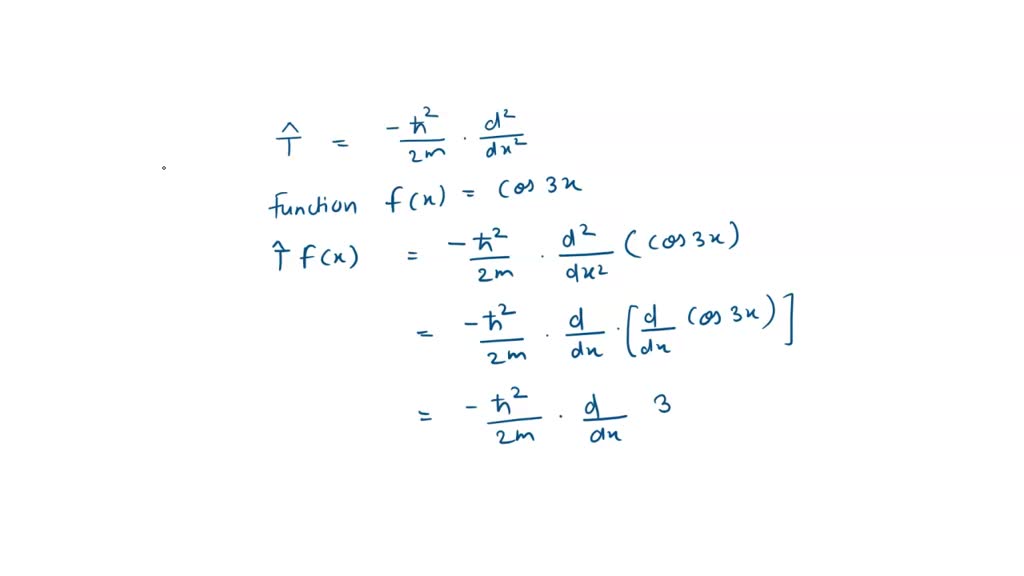 T̂ = -ħ²/2m · d²/dx²
function f(x) = cos 3x
T̂ f(x) = -ħ²/2m · d²/dx² (cos 3x)
= -ħ²/2m · d/dx · [d/dx cos 3x)]
= -ħ²/2m · d/dx 3